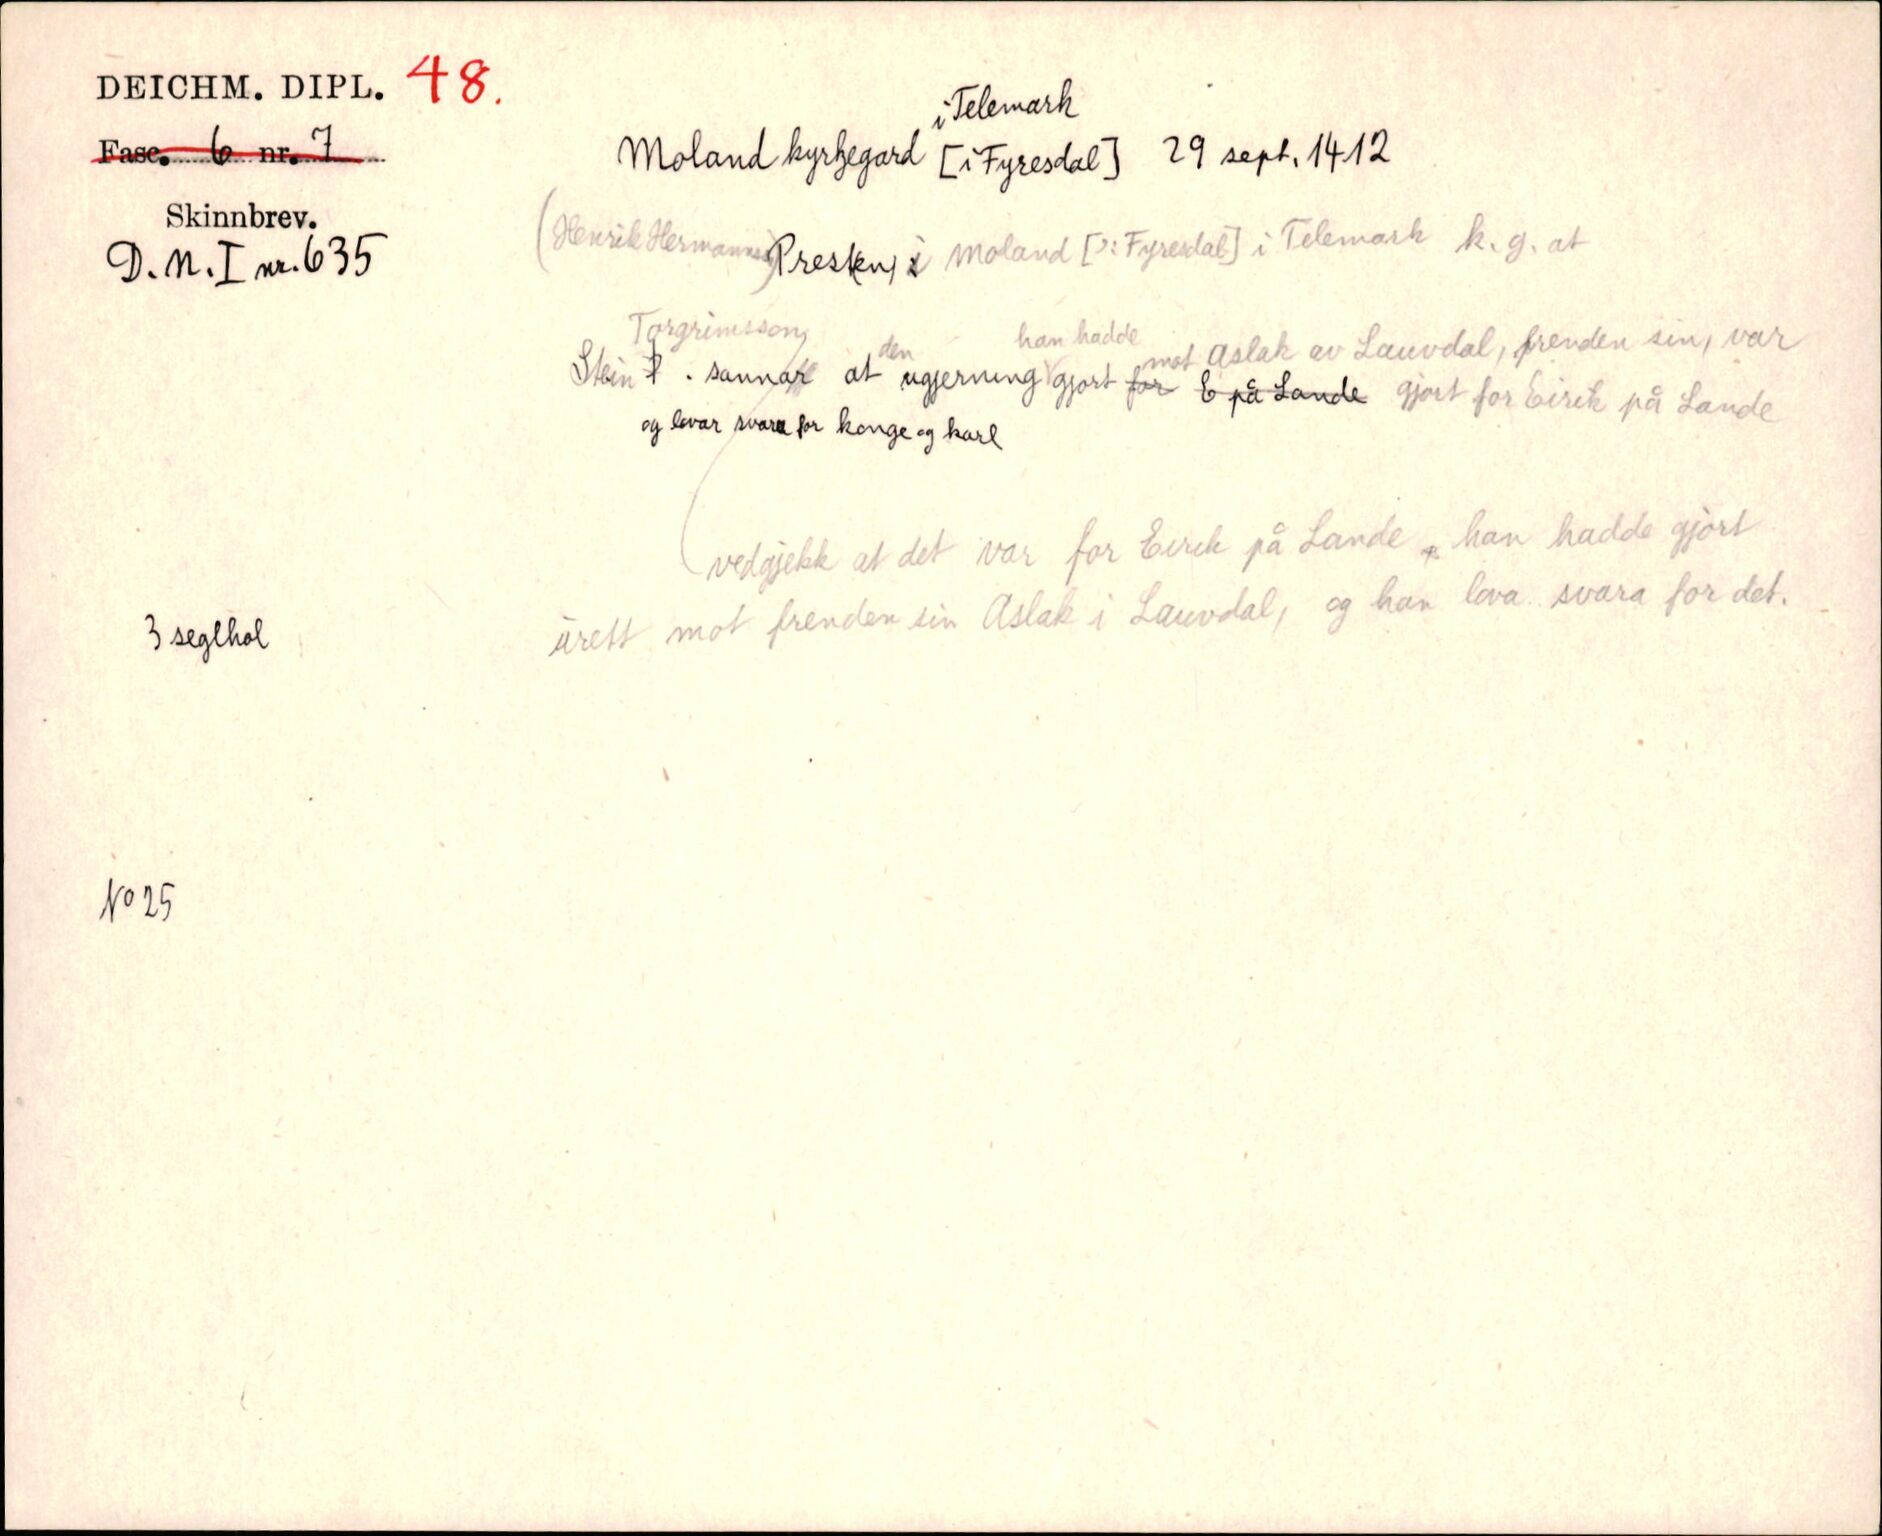 DEICHM. DIPL. 48.
Fasc. 6 nr. 7
Skinnbrev.
D.N. I nr. 635
i Telemark
Moland kyrkjegard [i Fyresdal] 29 sept. 1412
(Henrik Hermannss) Prest(en) i Moland [ɔ: Fyresdal] i Telemark k. g. at
Torgrimsson den han hadde mot Aslak av Lauvdal, frenden sin, var
Stein T. sannar at ugjerning gjort for E på Lande gjort for Eirik på Lande
og lovar svara for konge og karl
vedgjekk at det var for Eirik på Lande han hadde gjort
urett mot frenden sin Aslak i Lauvdal, og han lova svara for det.
3 seglhol
No 25